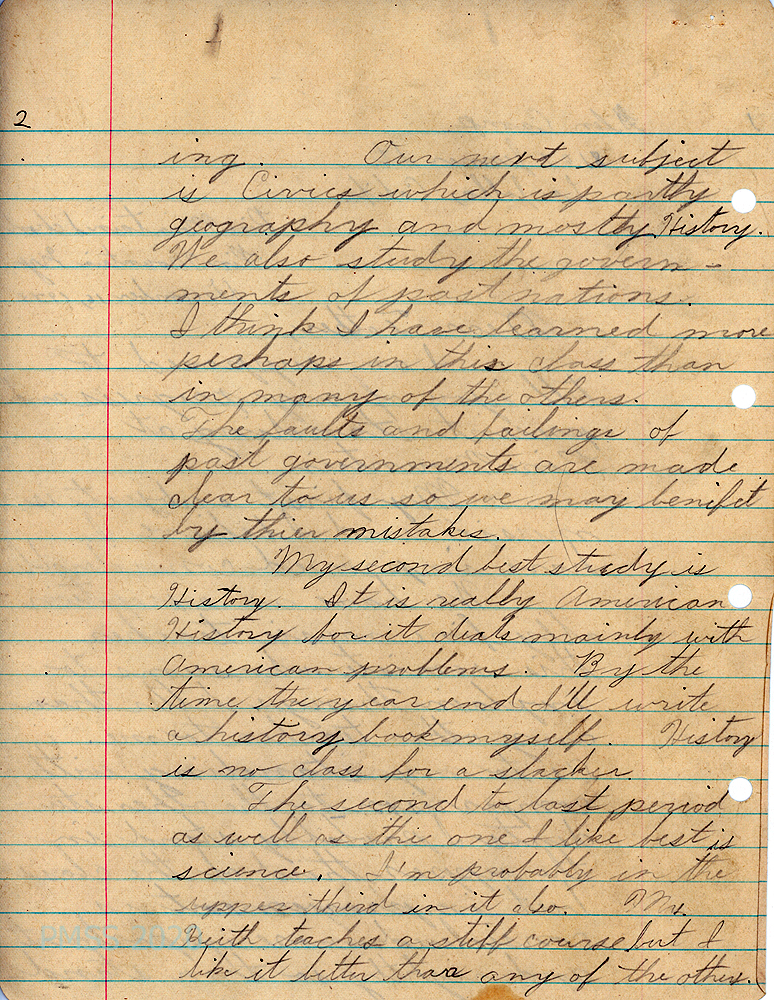 2
ing. Our next subject
is Civics which is partly
geography and mostly History.
We also study the govern-
ments of past nations.
I think I have learned more
perhaps in this class than
in many of the others.
The faults and failings of
past governments are made
clear to us so we may benifit
by thier mistakes.
My second best study is
History. It is really American
History for it deals mainly with
American problems. By the
time the year end I'll write
a history book myself. History
is no class for a slacker.
The second to last period
as well as the one I like best is
science. I'm probably in the
upper third in it also. Mr.
teaches a stiff course but I
like it better than any of the others.